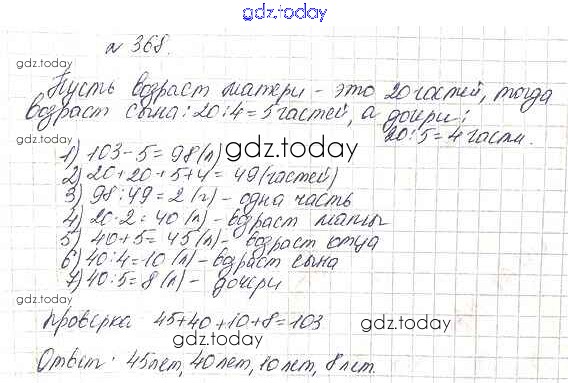 gdz.today
№ 368.
gdz.today
Пусть возраст матери - это 20 частей, тогда
возраст сына: 20:4=5 частей, а дочери:
20:5=4 части.
1) 103-5=98 (л) gdz.today
2) 20+20+5+4=49 (частей)
3) 98:49=2 (г) - одна часть
4) 20·2=40 (л) - возраст мамы
5) 40+5=45 (л) - возраст отца
6) 40:4=10 (л) - возраст сына
7) 40:5=8 (л) - дочери
gdz.today
gdz.today
Проверка 45+40+10+8=103
gdz.today
Ответ: 45 лет, 40 лет, 10 лет, 8 лет.
gdz.today